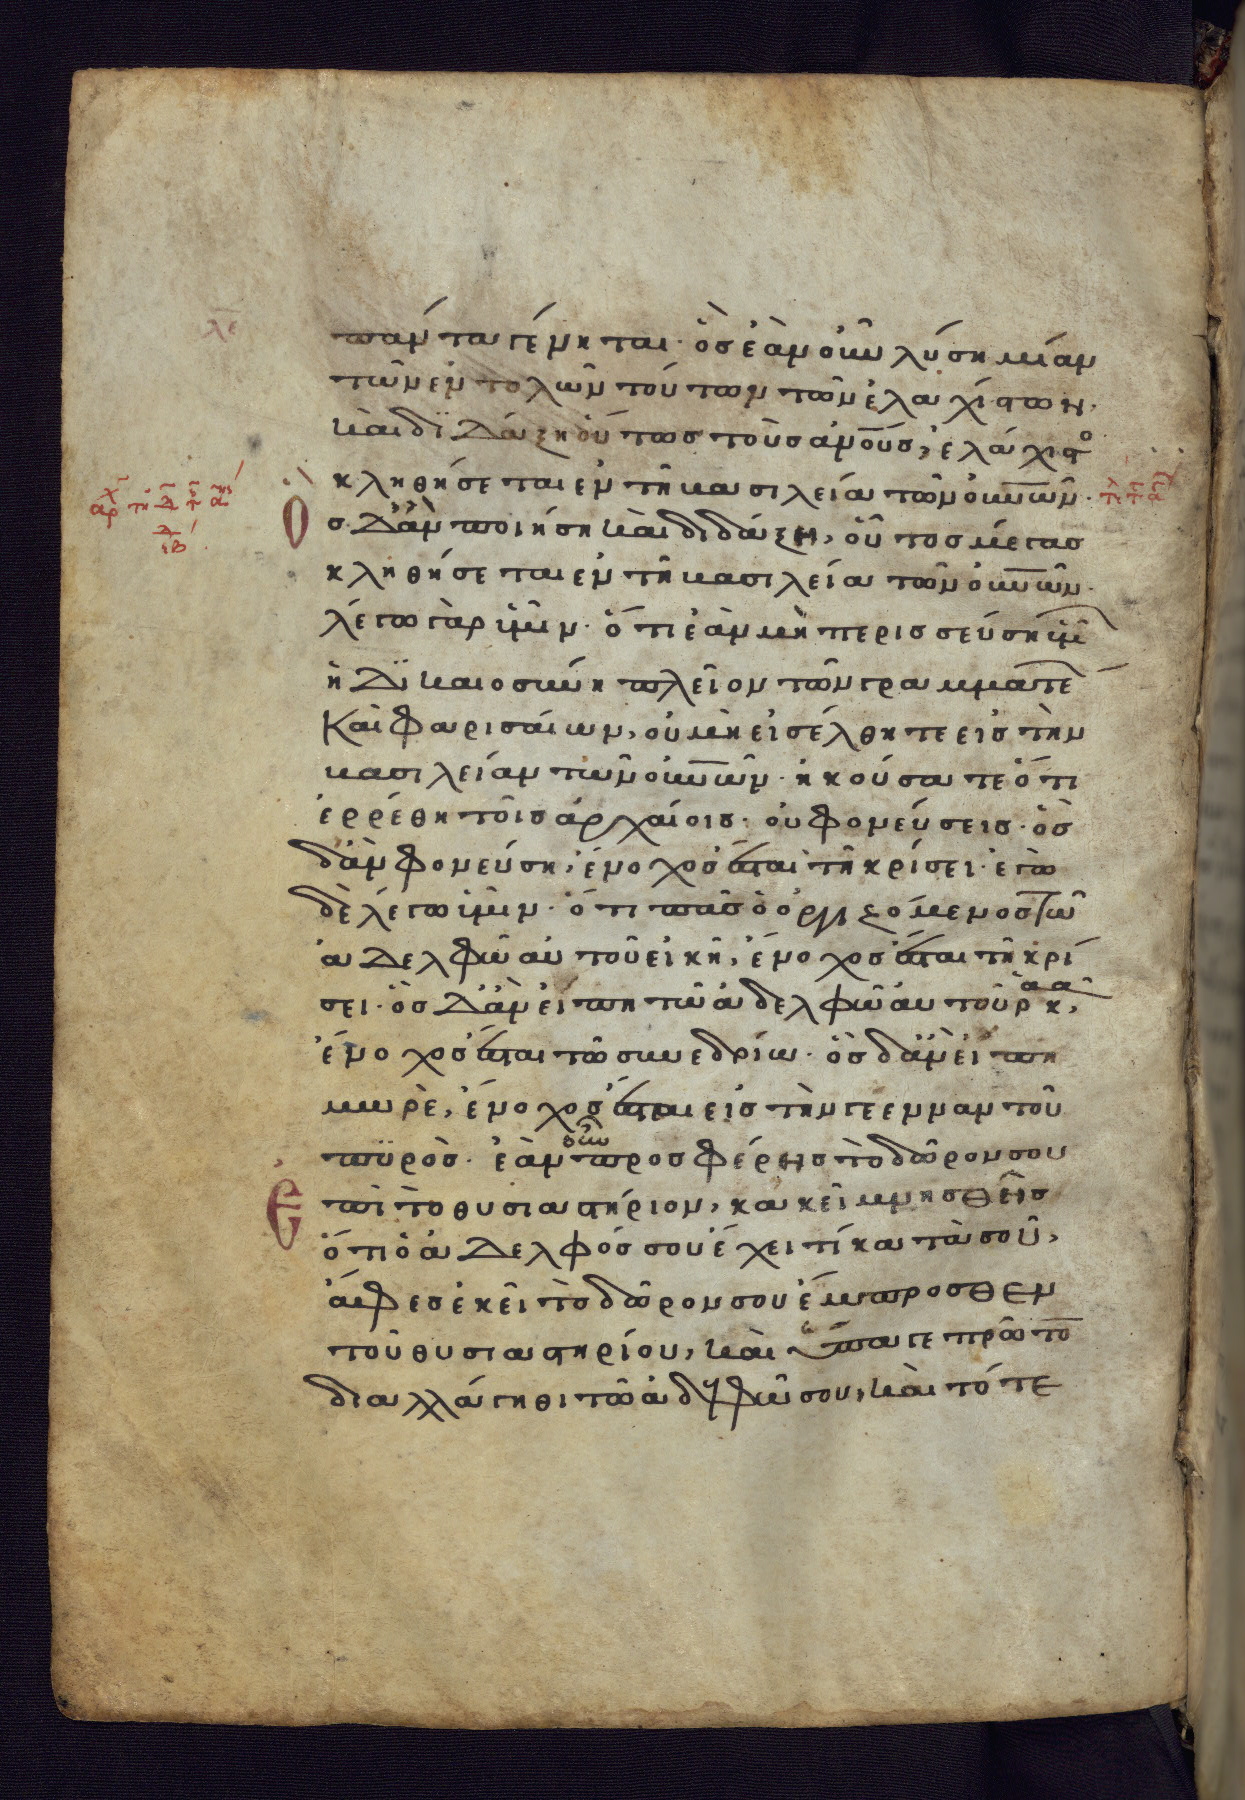 λε
πάντα γένηται· ὃς ἐὰν οὖν λύση μίαν
τῶν ἐντολῶν τούτων τῶν ἐλαχίστων.
καὶ διδάξη οὕτως τοὺς ἀνους, ἐλάχιστο
κληθήσεται ἐν τῆ βασιλεία τῶν οὐνῶν·
Ὃς δ' ἂν ποιήση καὶ διδάξη, οὗτος μέγας
κληθήσεται ἐν τῆ βασιλεία τῶν οὐνῶν·
λέγω γὰρ ὑμῖν· ὅτι ἐὰν μὴ περισσεύση ὑμ
ἡ δικαιοσύνη πλεῖον τῶν γραμματέ
καὶ φαρισαίων, οὐ μὴ εἰσέλθητε εἰς τὴν
βασιλείαν τῶν οὐνῶν· ἠκούσατε ὅτι
ἐρρέθη τοῖς ἀρχαίοις· οὐ φονεύσεις· ὃς
δ' ἂν φονεύση, ἔνοχος ἔσται τῆ κρίσει· ἐγὼ
δὲ λέγω ὑμῖν· ὅτι πᾶς ὁ ὀργιζόμενος τῶ
ἀδελφῶ αὐτοῦ εἰκῆ, ἔνοχος ἔσται τῆ κρί
σει· ὃς δ' ἂν εἴπη τῶ ἀδελφῶ αὐτοῦ ῥακα,
ἔνοχος ἔσται τῶ συνεδρίω· ὃς δ' ἂν εἴπη
μωρὲ, ἔνοχος ἔσται εἰς τὴν γέενναν τοῦ
πυρός· ἐὰν οὖν προσφέρης τὸ δῶρον σου
Ἐπὶ τὸ θυσιαστήριον, κακεῖ μνησθῆς
ὅτι ὁ ἀδελφός σου ἔχει τί κατὰ σοῦ,
ἄφες ἐκεῖ τὸ δῶρον σου ἔμπροσθεν
τοῦ θυσιαστηρίου, καὶ ὕπαγε πρῶτο
διαλλάγηθι τῶ ἀδελφῶ σου, καὶ τότε